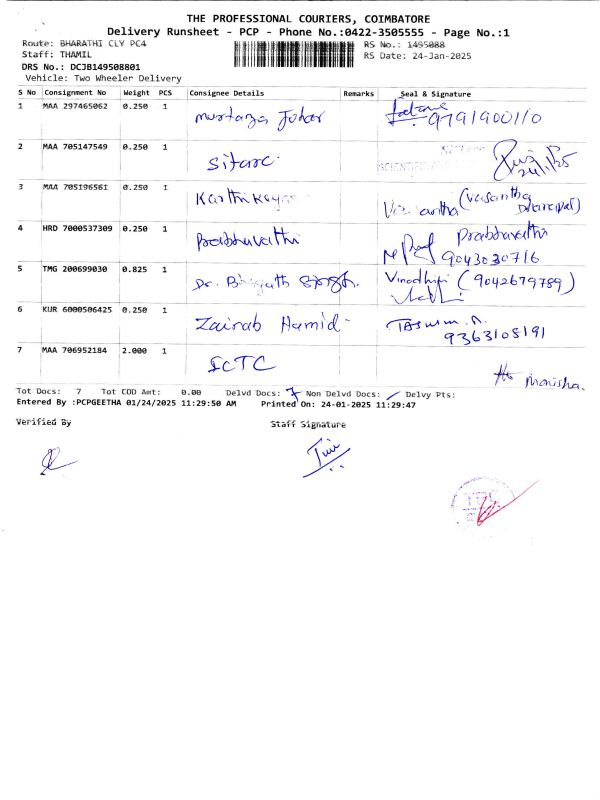 THE PROFESSIONAL COURIERS, COIMBATORE
Delivery Runsheet - PCP - Phone No.:0422-3505555 - Page No.:1
Route: BHARATHI CLY PC4 RS No.: 1495088
Staff: THAMIL RS Date: 24-Jan-2025
DRS No.: DCJB149508801
Vehicle: Two Wheeler Delivery
S No Consignment No Weight PCS Consignee Details Remarks Seal & Signature
1 MAA 297465062 0.250 1 Murtaza Johar 9791900110
2 MAA 705147549 0.250 1 Sitarc SCIENTIFIC
3 MAA 705196561 0.250 1 Karthikeyan Vasantha (Vasantha
4 HRD 7000537309 0.250 1 Prabhavathi Prabhavathi
9043030716
5 TMG 200699030 0.825 1 Dr. Singh. Vinodhini (9042679789)
6 KUR 6000506425 0.250 1 Zainab Hamid Tasnim. A.
9363105191
7 MAA 706952184 2.000 1 ICTC Monisha.
Tot Docs: 7 Tot COD Amt: 0.00 Delvd Docs: 7 Non Delvd Docs: Delvy Pts:
Entered By :PCPGEETHA 01/24/2025 11:29:50 AM Printed On: 24-01-2025 11:29:47
Verified By Staff Signature